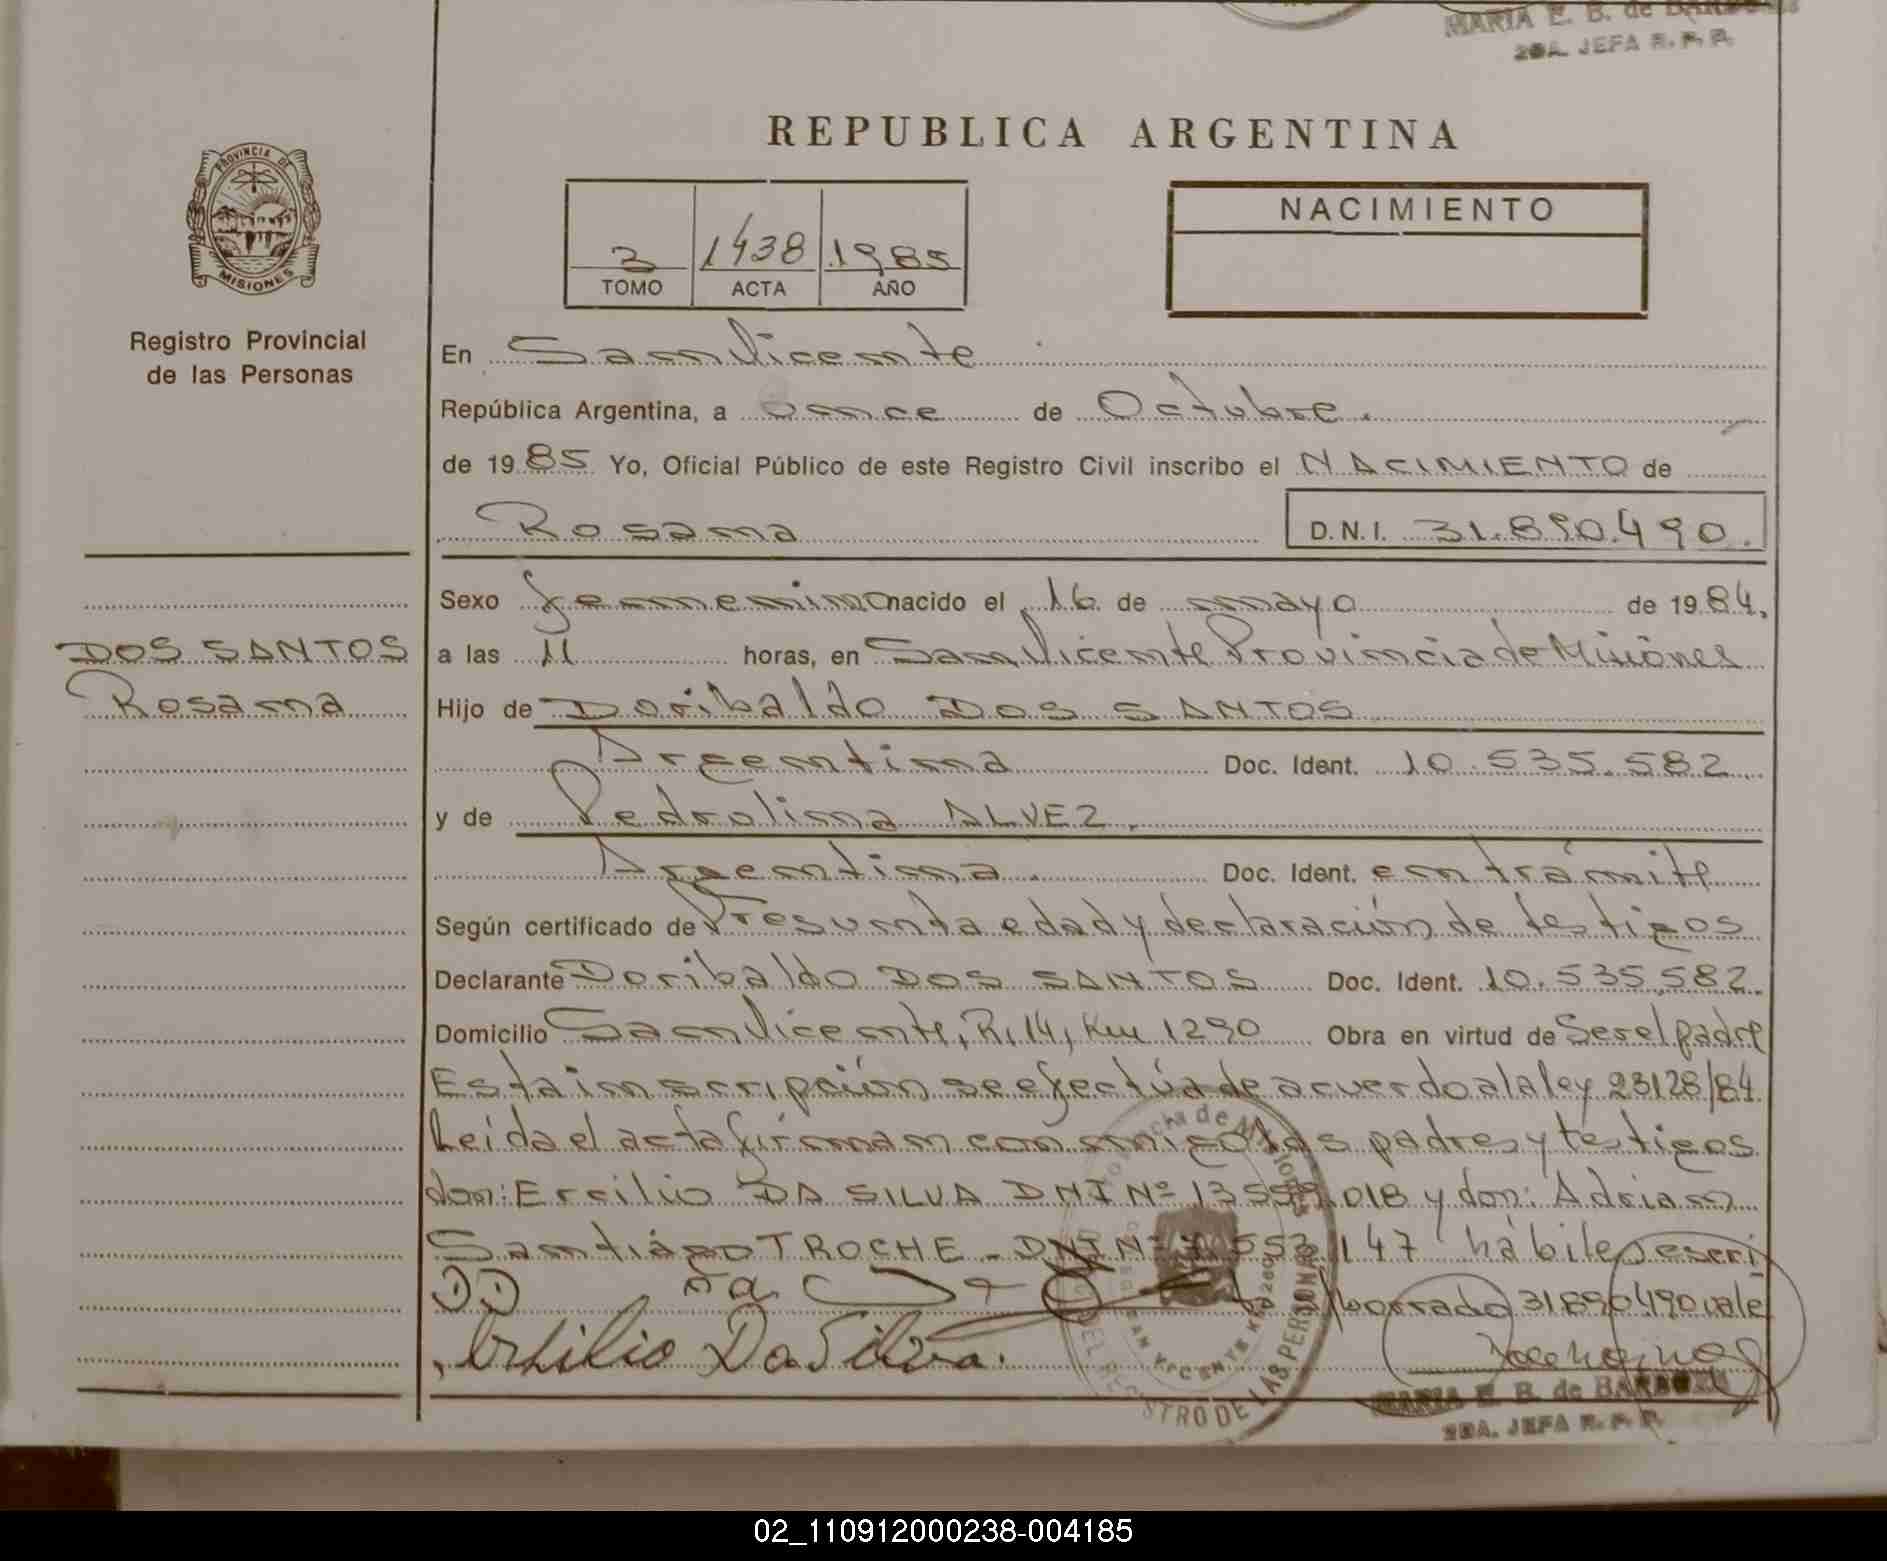 MARIA E. B. de BARBOZA
2DA. JEFA R. P. P.
REPUBLICA ARGENTINA
PROVINCIA DE
MISIONES
Registro Provincial
de las Personas
3 1438 1985
TOMO ACTA AÑO
NACIMIENTO
En San Vicente
República Argentina, a once de Octubre.
de 1985 Yo, Oficial Público de este Registro Civil inscribo el NACIMIENTO de
Rosana D.N.I. 31.890.490.
DOS SANTOS
Rosana
Sexo femenino nacido el 16 de mayo de 1984,
a las 11 horas, en San Vicente Provincia de Misiones
Hijo de Doribaldo DOS SANTOS
Argentina Doc. Ident. 10.535.582
y de Pedrolina ALVEZ.
Argentina. Doc. Ident. en trámite
Según certificado de Presunta edad y declaración de testigos
Declarante Doribaldo DOS SANTOS Doc. Ident. 10.535.582.
Domicilio San Vicente, R. 14, Km 1290 Obra en virtud de Ser el padre
Esta inscripción se efectúa de acuerdo a la ley 23128/84
Leída el acta firman conmigo los padres y testigos
don: Ercilio DA SILVA DNI Nº 13.559.018 y don: Adrian
Santiago TROCHE - DNI Nº 553.147 hábiles escri
borrado 31890490 vale
Ersilio Da Silva.
Provincia de Misiones
SAN VICENTE
REGISTRO DE LAS PERSONAS
MARIA E. B. de BARBOZA
2DA. JEFA R. P. P.
02_110912000238-004185